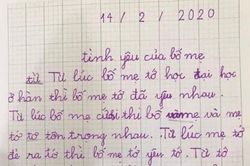 14 / 2 / 2020
tình yêu của bố mẹ
từ Từ lúc bố mẹ tớ học đại học
ở hàn thì bố mẹ tớ đã yêu nhau.
Từ lúc bố mẹ cưới thì bố và mẹ và mẹ
tớ tơ tôn trong nhau. Từ lúc mẹ tớ
đẻ ra tớ thì bố mẹ tớ yêu tớ. Từ tớ